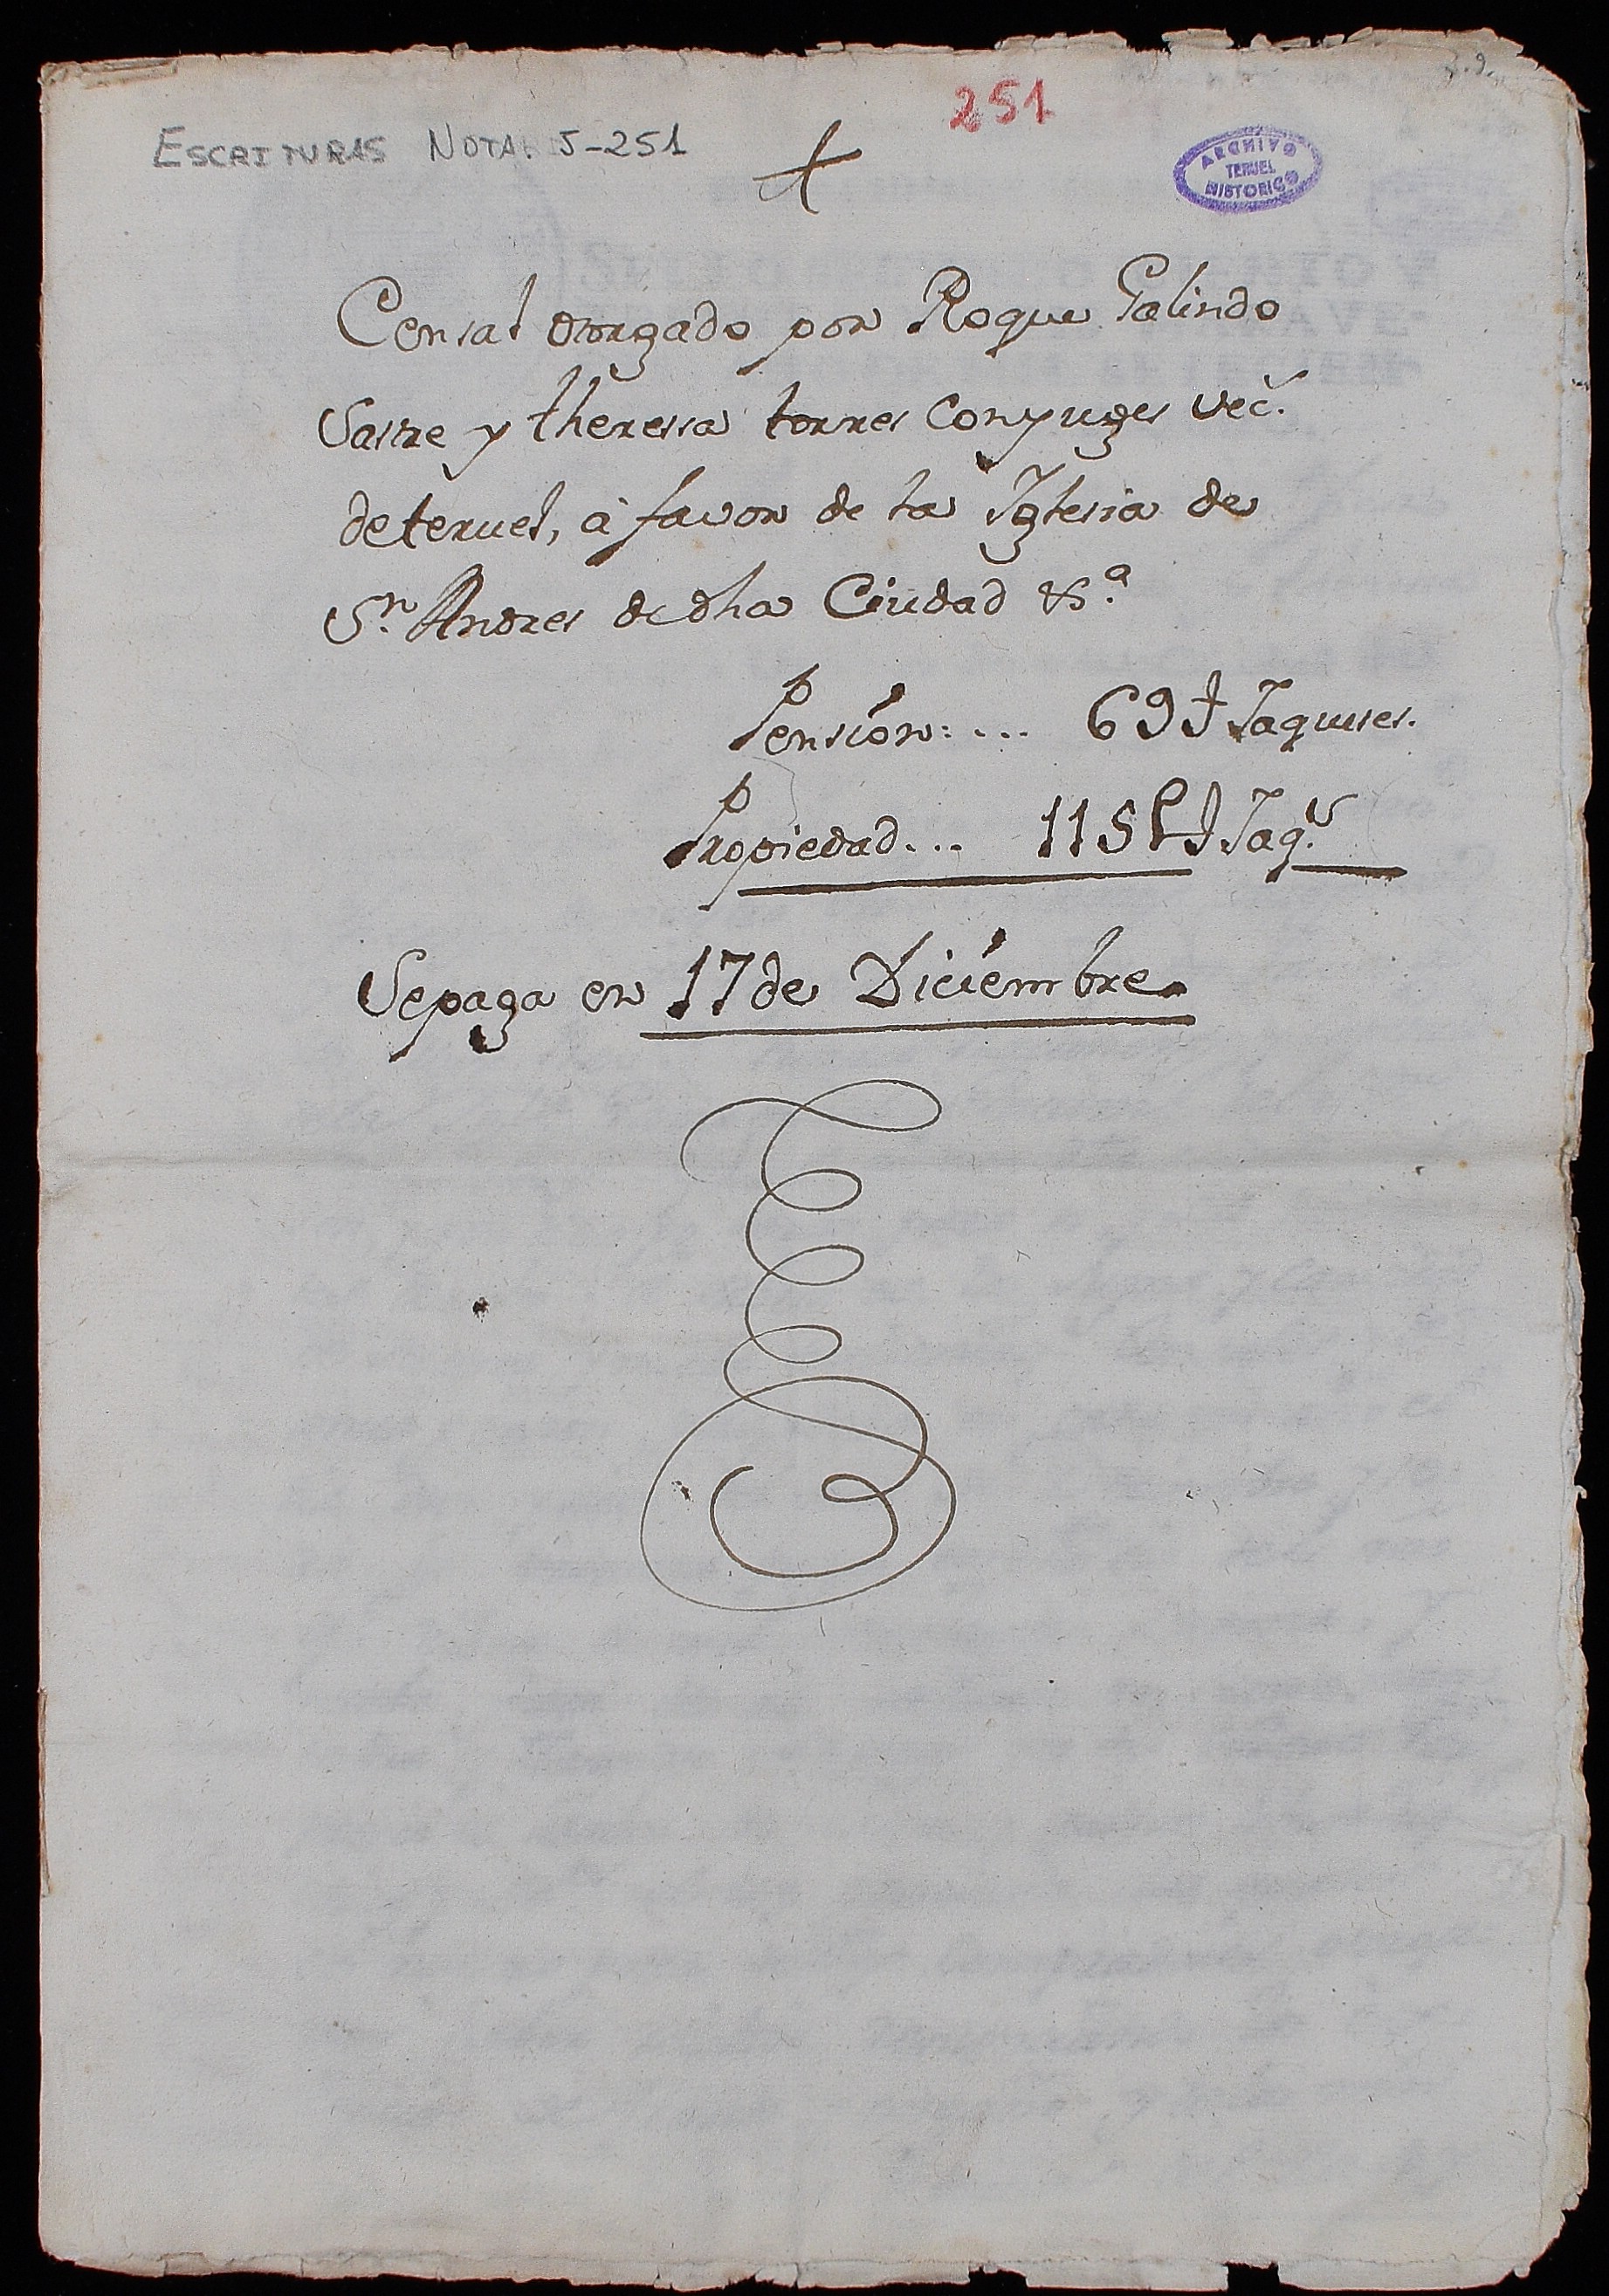 251
ESCRITURAS NOTA. 5-251
ARCHIVO
TERUEL
HISTORICO
Censal otorgado por Roque Galindo
Sastre y theressa torres Conyuges već.
deteruel, à favor de la Iglesia de
Sn. Andres de dha Ciudad &a.
Pensión:... 69 Jaqueses.
Propiedad... 115 Jaqs.
Sepaga en 17 de Diciembre